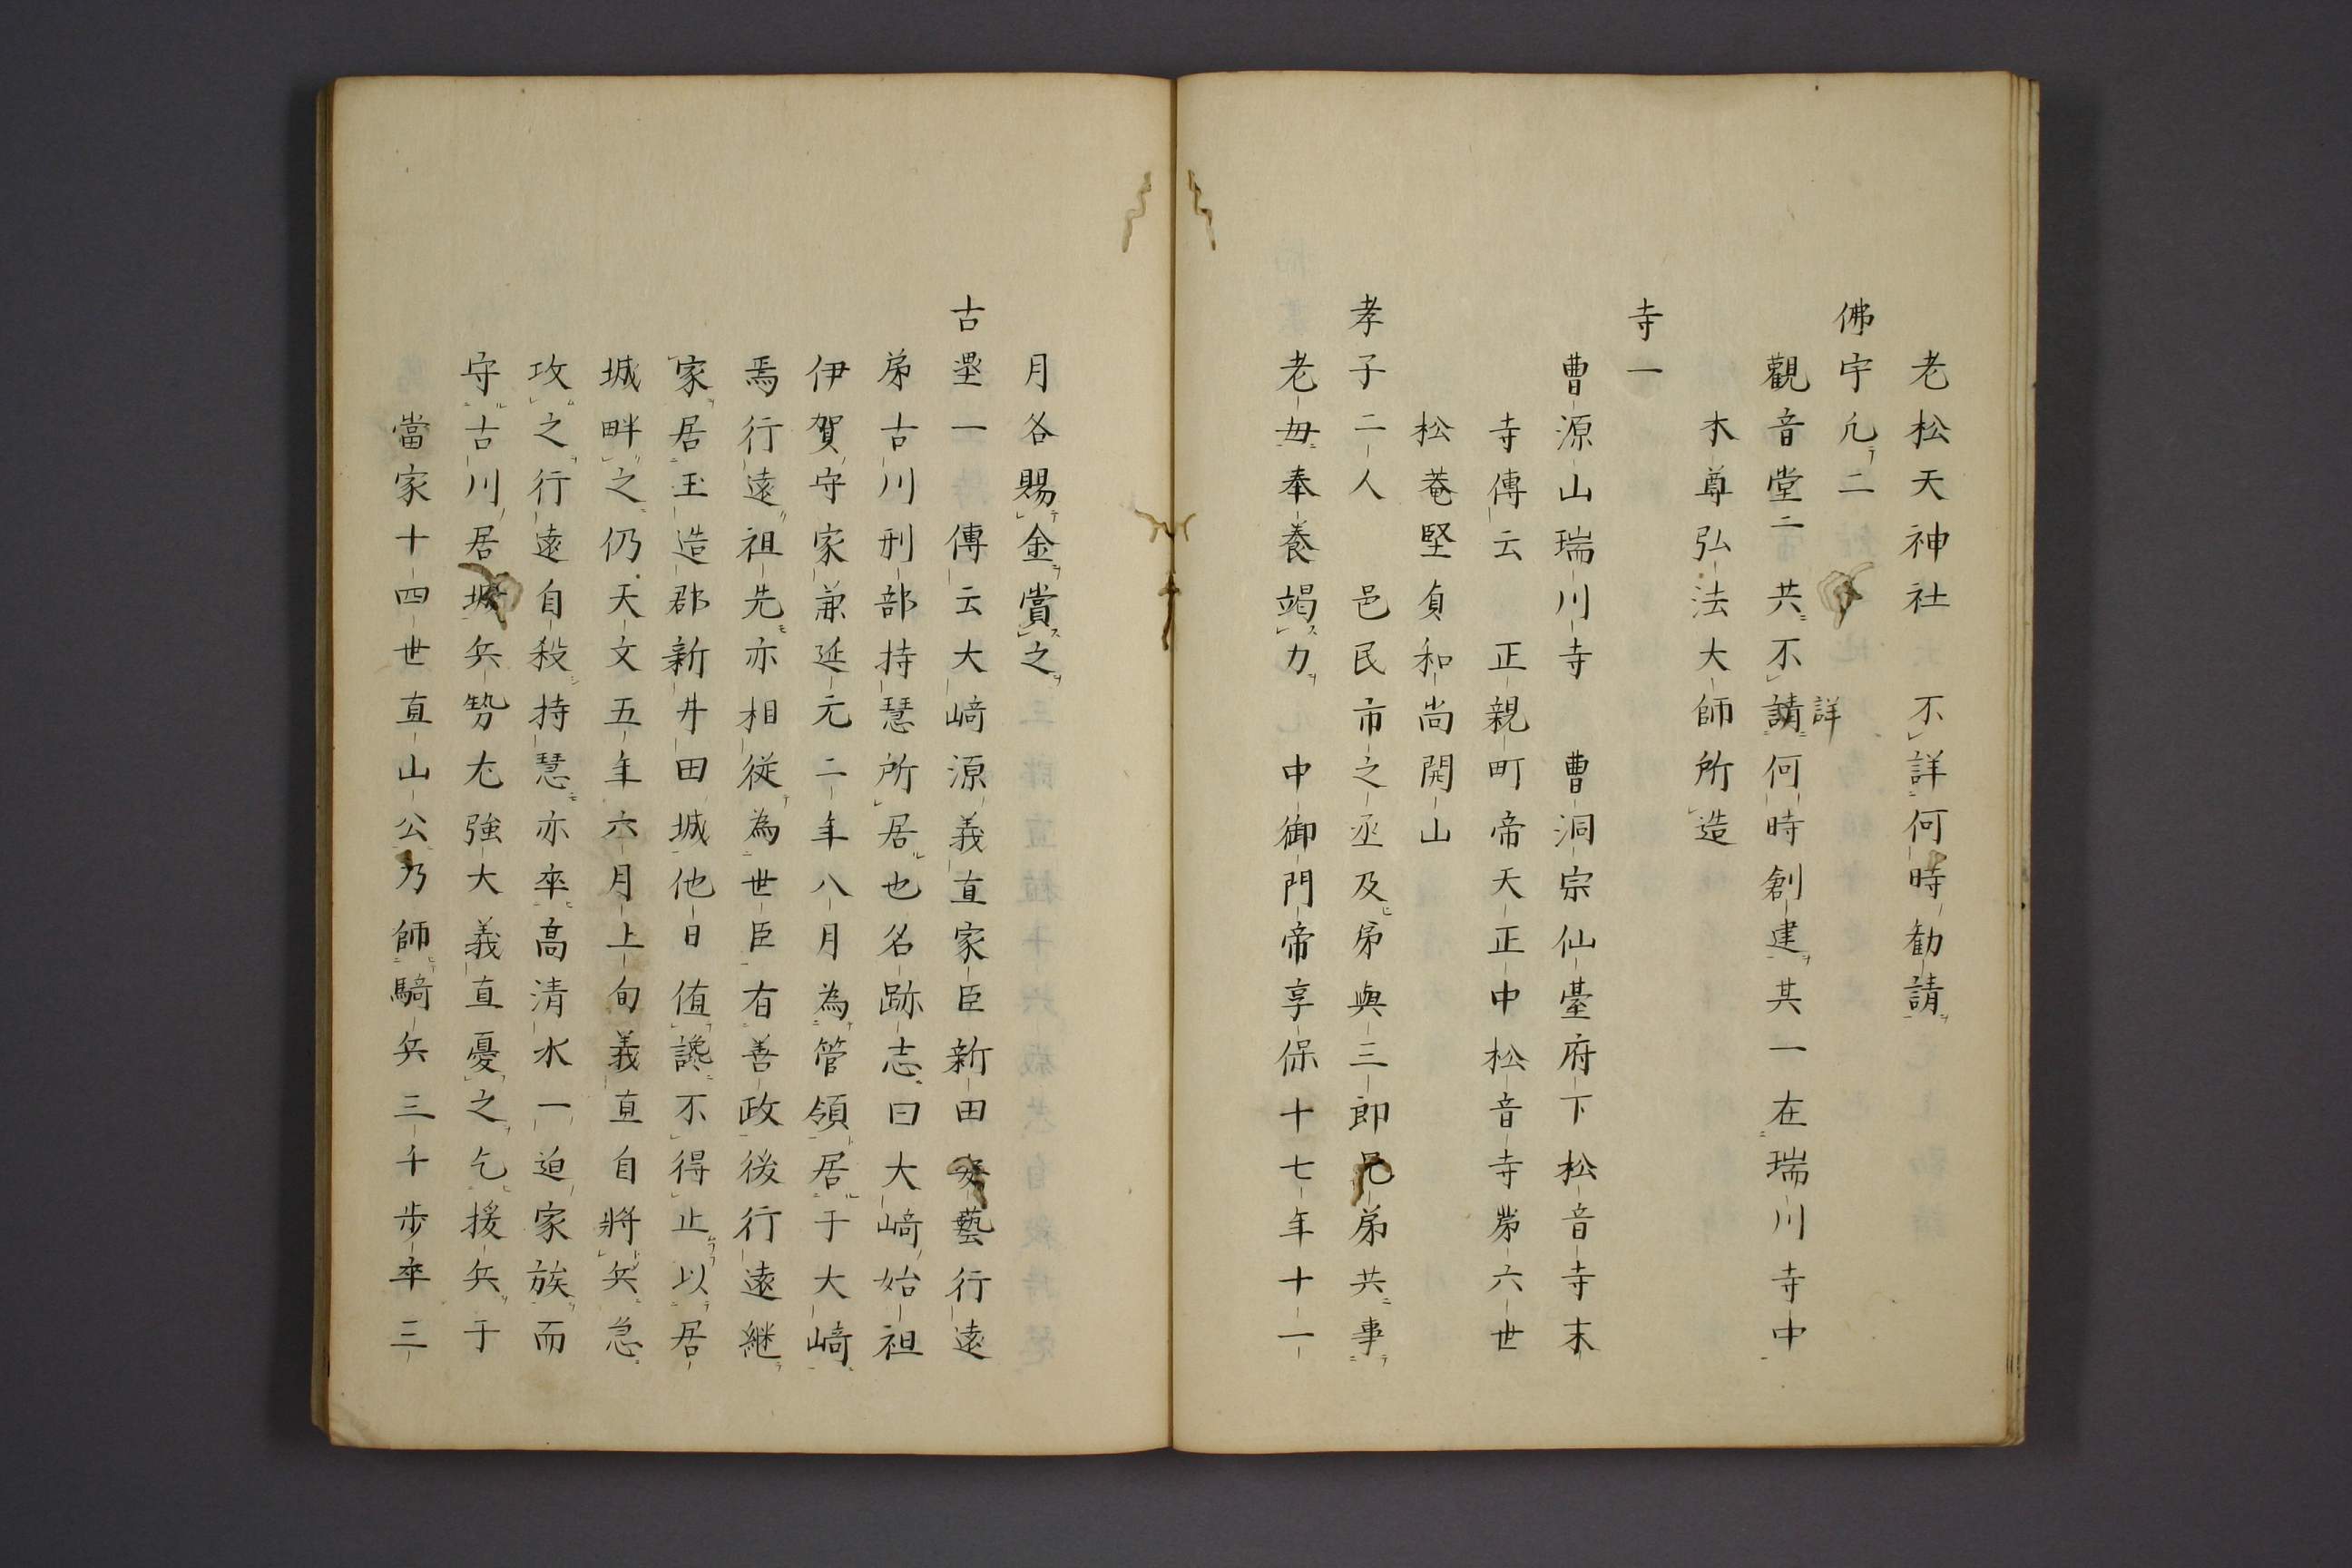 老松天神社　不詳何時勧請
佛宇凢二
觀音堂二　共不請詳何時創建其一在瑞川寺中
木尊弘法大師所造
寺一
曹源山瑞川寺　曹洞宗仙臺府下松音寺末
寺傳云　正親町帝天正中松音寺苐六世
松菴堅貞和尚開山
孝子二人　邑民市之丞及弟與三郎兄弟共事
老毋奉養竭力　中御門帝享保十七年十一
月各賜金賞之
古壘一　傳云大﨑源義直家臣新田安藝行遠
弟古川刑部持慧所居也名跡志曰大﨑始祖
伊賀守家兼延元二年八月為管領居于大﨑
焉行遠祖先亦相從為世臣有善政後行遠継
家居玉造郡新井田城他日值讒不得止以居
城畔之仍天文五年六月上旬義直自將兵急
攻之行遠自殺持慧亦卒高清水一迫家族而
守古川居城兵勢尤強大義直憂之乞援兵于
當家十四世直山公乃師騎兵三千歩卒三